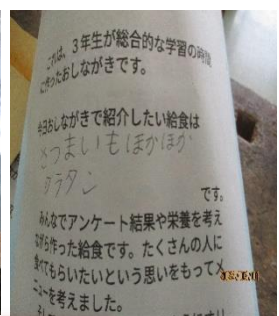 これは、3年生が総合的な学習の時間
に作ったおしながきです。
今日おしながきで紹介したい給食は
さつまいもほかほか
グラタン
です。
みんなでアンケート結果や栄養を考え
ながら作った給食です。たくさんの人に
食べてもらいたいという思いをもってメ
ニューを考えました。